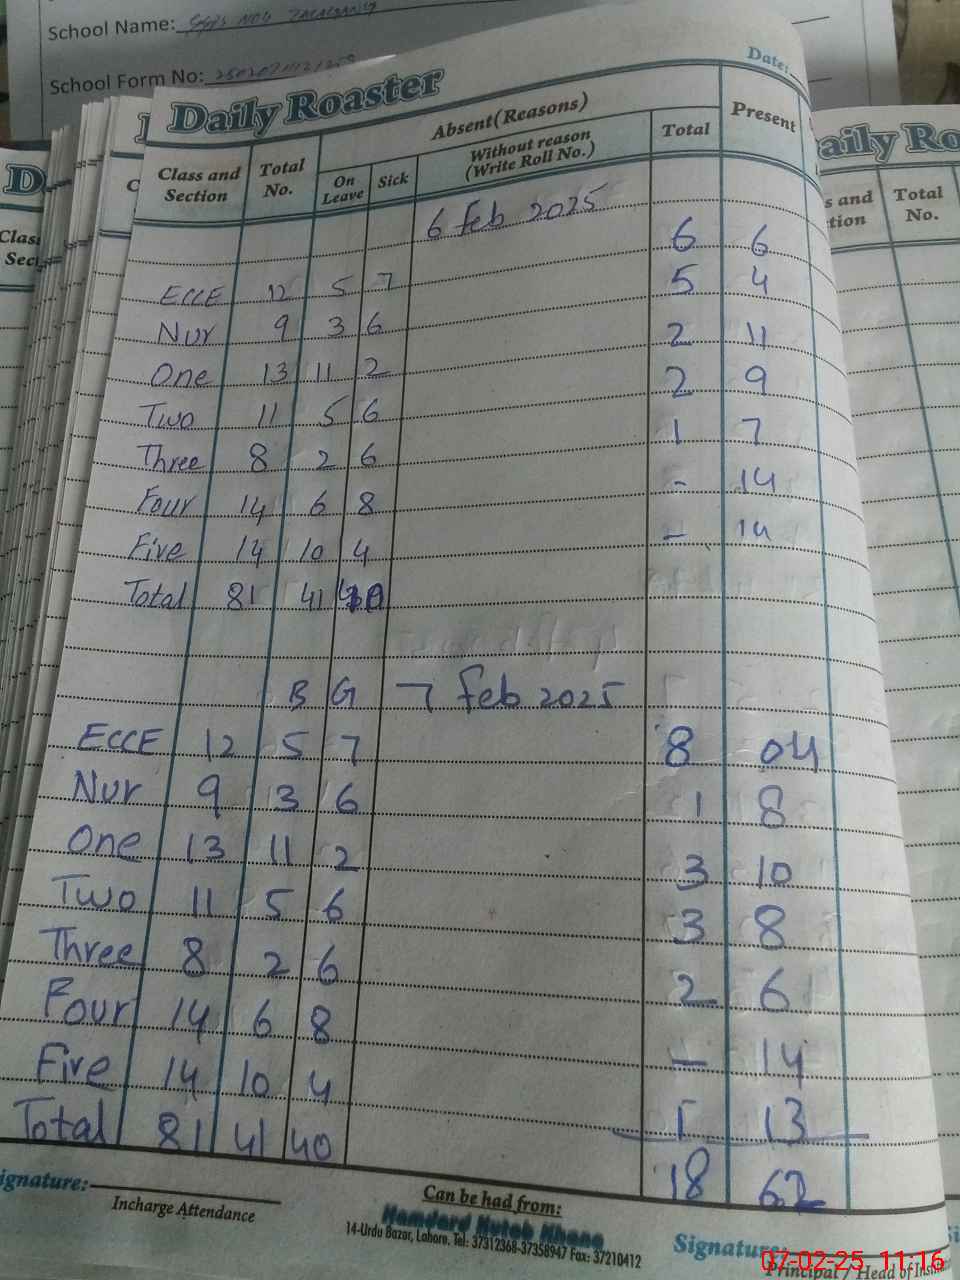 School Name:
School Form No:
Date:
Daily Roaster
Class and Section Total No. Absent(Reasons) Present
On Leave Sick Without reason (Write Roll No.) Total
6 Feb 2025
ECCE 12 5 7 6 6
Nur 9 3 6 5 4
One 13 11 2 2 11
Two 11 5 6 2 9
Three 8 2 6 1 7
Four 14 6 8 - 14
Five 14 10 4 - 14
Total 81 41
B G 7 Feb 2025
ECCE 12 5 7 8 04
Nur 9 3 6 1 8
One 13 11 2 3 10
Two 11 5 6 3 8
Three 8 2 6 2 6
Four 14 6 8 - 14
Five 14 10 4 1 13
Total 81 41 40 18 62
ignature:
Incharge Attendance
Can be had from:
Hamdard Kutab Khana
14-Urdu Bazar, Lahore. Tel: 37312368-37358947 Fax: 37210412
Signature:
Principal / Head of Insti
07-02-25 11:16
D
Clas
Sec
aily Ro
s and tion Total No.